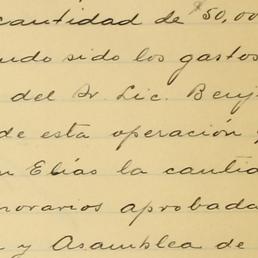 cantidad de $50,00
ndo sido los gastos
del Sr. Lic. Benj
de esta operación y
n Elías la cantid
norarios aprobada
y Asamblea de